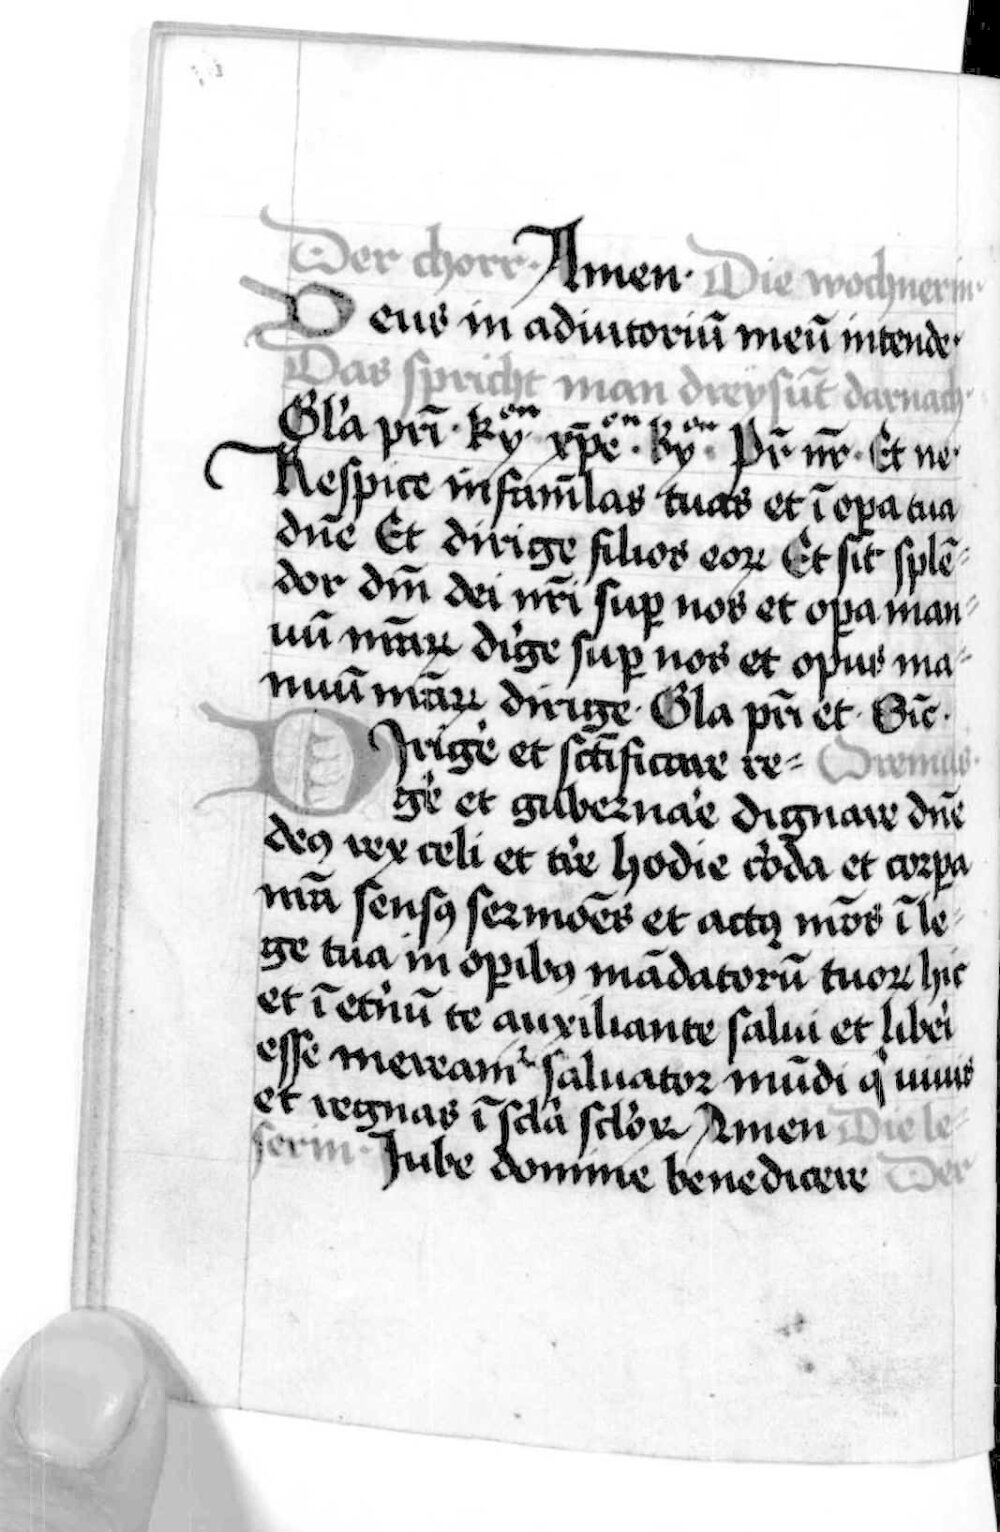 Der chorr· Amen· Die wochnerin·
Deus in adiutoriū meū intende·
Das spricht man dreysūt darnach·
Gl'a pr̄i · kyᵒⁿ xp̄eᵒⁿ · kyᵒⁿ · Pr̄ nr̄ · Et ne·
Respice in fam̄las tuas et ī oꝑa tua
dn̄e Et dirige filios eoꝝ Et sit splē-
dor dn̄i dei nr̄i suꝑ nos et oꝑa man-
uū nr̄aꝝ di'ge suꝑ nos et opus ma-
nuū nr̄aꝝ dirige· Gl'a pr̄i et · Sic̄ ·
Dirige' et sc̄tificare re- Oremus·
ge' et guberna'e dignare dn̄e
deꝰ rex celi et t're hodie co'da et corꝑa
nr̄a sensꝰ sermōes et actꝰ nr̄os ī le-
ge tua in oꝑibꝰ mādatorū tuoꝝ hic
et ī et'nū te auxiliante salui et libe'i
esse mereamʳ saluator mūdi q' uiuis
et regnas ī sc'la sc'loꝝ Amen Die le-
serin · Jube domine benedicere Der